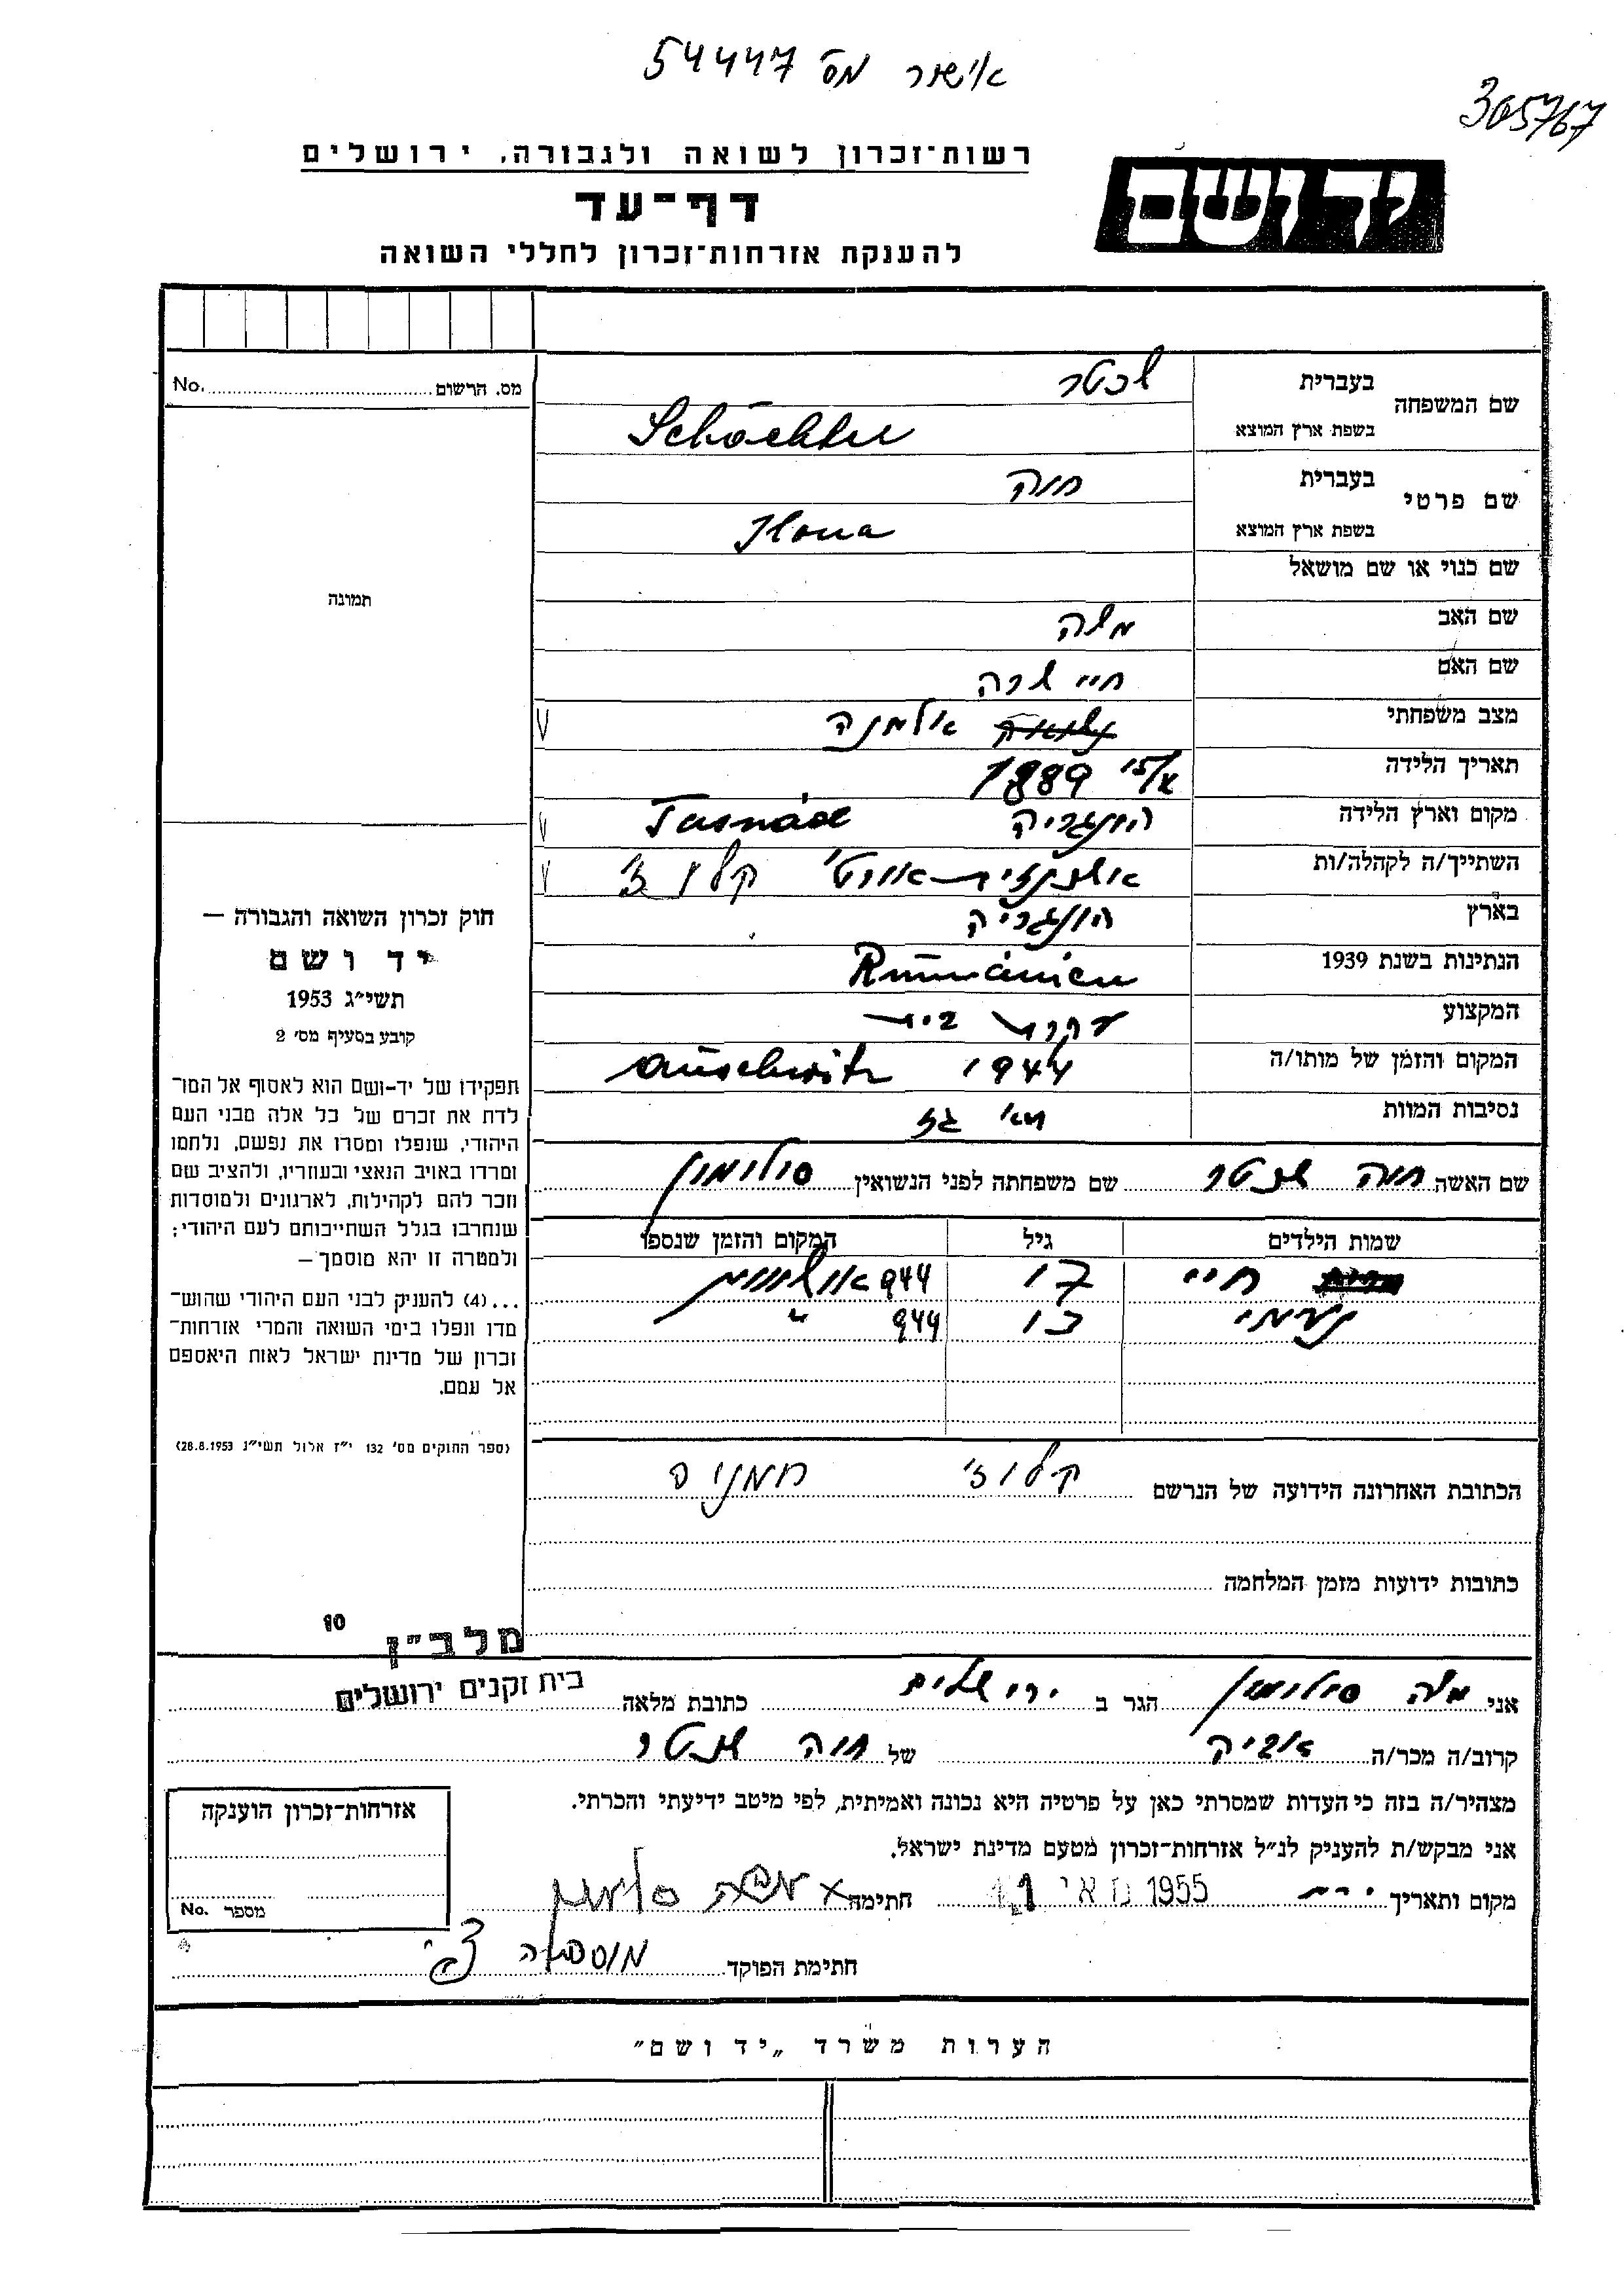 אישור מס' 54447
305767
רשות־זכרון לשואה ולגבורה, ירושלים
יד ושם
דף־עד
להענקת אזרחות־זכרון לחללי השואה
מס. הרשום No.
תמונה
שם המשפחה בעברית שכטר
בשפת ארץ המוצא Schächter
שם פרטי בעברית חוה
בשפת ארץ המוצא Ilona
שם כנוי או שם מושאל
שם האב משה
שם האם חיי שרה
מצב משפחתי אלמנה
תאריך הלידה 1889
מקום וארץ הלידה הונגריה Tasnád
השתייך/ה לקהלה/ות קלוז'
בארץ הונגריה
הנתינות בשנת 1939 Rumänien
המקצוע עקרת בית
המקום והזמן של מותו/ה 1944 Auschwitz
נסיבות המוות תאי גז
שם האשה חוה שכטר שם משפחתה לפני הנשואין סולומון
שמות הילדים גיל המקום והזמן שנספו
חיי 17 944 אושוויץ
נעמי 13 944 "
הכתובת האחרונה הידועה של הנרשם קלוז' רומניה
כתובות ידועות מזמן המלחמה
חוק זכרון השואה והגבורה —
יד ושם
תשי״ג 1953
קובע בסעיף מס׳ 2
תפקידו של יד-ושם הוא לאסוף אל המו־
לדת את זכרם של כל אלה מבני העם
היהודי, שנפלו ומסרו את נפשם, נלחמו
ומרדו באויב הנאצי ובעוזריו, ולהציב שם
וזכר להם לקהילות, לארגונים ולמוסדות
שנחרבו בגלל השתייכותם לעם היהודי;
ולמטרה זו יהא מוסמך —
...(4) להעניק לבני העם היהודי שהוש־
מדו ונפלו בימי השואה והמרי אזרחות־
זכרון של מדינת ישראל לאות היאספם
אל עמם.
(ספר החוקים מס׳ 132 י״ז אלול תשי״ג 28.8.1953)
10
מלב״ן
אני משה סולומון הגר ב ירושלים כתובת מלאה בית זקנים ירושלים
קרוב/ה מכר/ה אביה של חוה שכטר
מצהיר/ה בזה כי העדות שמסרתי כאן על פרטיה היא נכונה ואמיתית, לפי מיטב ידיעתי והכרתי.
אני מבקש/ת להעניק לנ״ל אזרחות־זכרון מטעם מדינת ישראל.
מקום ותאריך 11 מאי 1955 חתימה משה סולומון
חתימת הפוקד
אזרחות־זכרון הוענקה
מספר No.
הערות משרד „יד ושם"